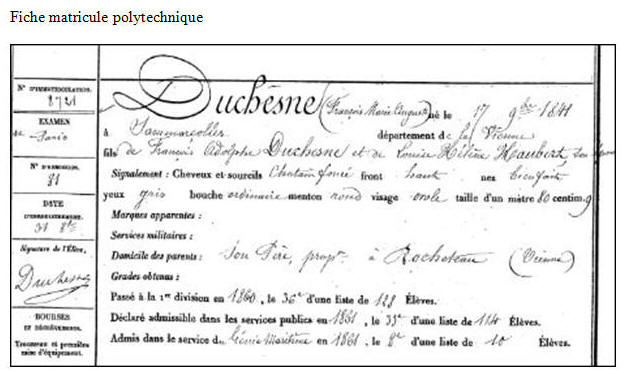 Fiche matricule polytechnique
N° D'IMMATRICULATION.
8721
EXAMEN
de Paris
N° D'ADMISSION.
91
DATE
D'ENREGISTREMENT.
31 8bre
Signature de l'Élève,
Duchesne
BOURSES
ET DÉGRÈVEMENTS.
Trousseau et première
mise d'équipement.
Duchesne (François Marie August) né le 17 9bre 1841
à Sammarcolles département de la Vienne
fils de François Adolphe Duchesne et de Louise Hélène Haubert son
Signalement : Cheveux et sourcils Chatain foncé front haut nez bienfait
yeux gris bouche ordinaire menton rond visage ovale taille d'un mètre 80 centim. 9
Marques apparentes :
Services militaires :
Domicile des parents : Son Père, propre à Rocheteau (Vienne)
Grades obtenus :
Passé à la 1re division en 1860, le 36e d'une liste de 128 Élèves.
Déclaré admissible dans les services publics en 1861, le 35e d'une liste de 114 Élèves.
Admis dans le service du Génie Maritime en 1861, le 8e d'une liste de 10 Élèves.